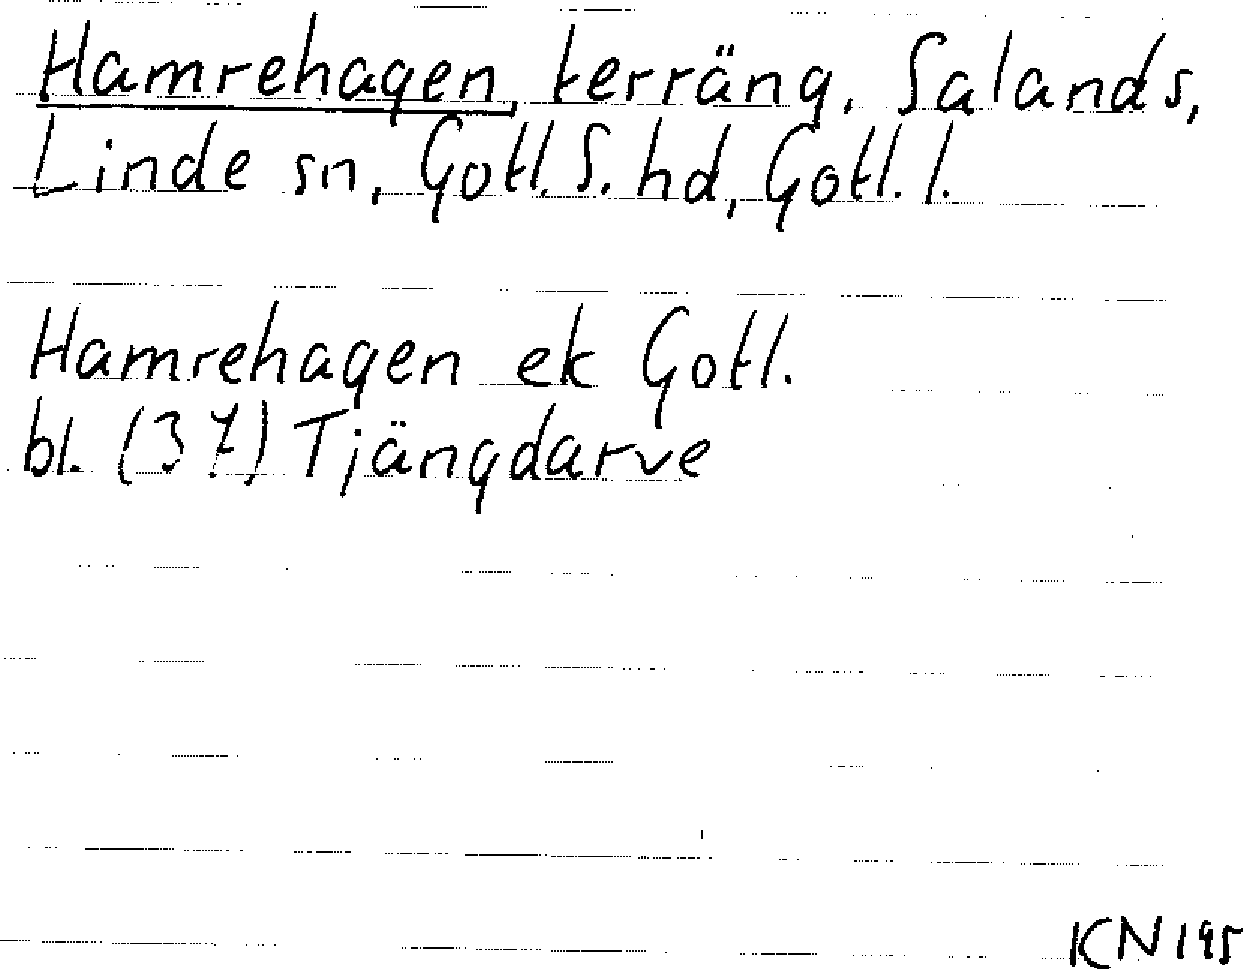 Hamrehagen, terräng, Salands,
Linde sn, Gotl. S. hd, Gotl. l.
Hamrehagen ek Gotl.
bl. (37) Tjängdarve
KN 195